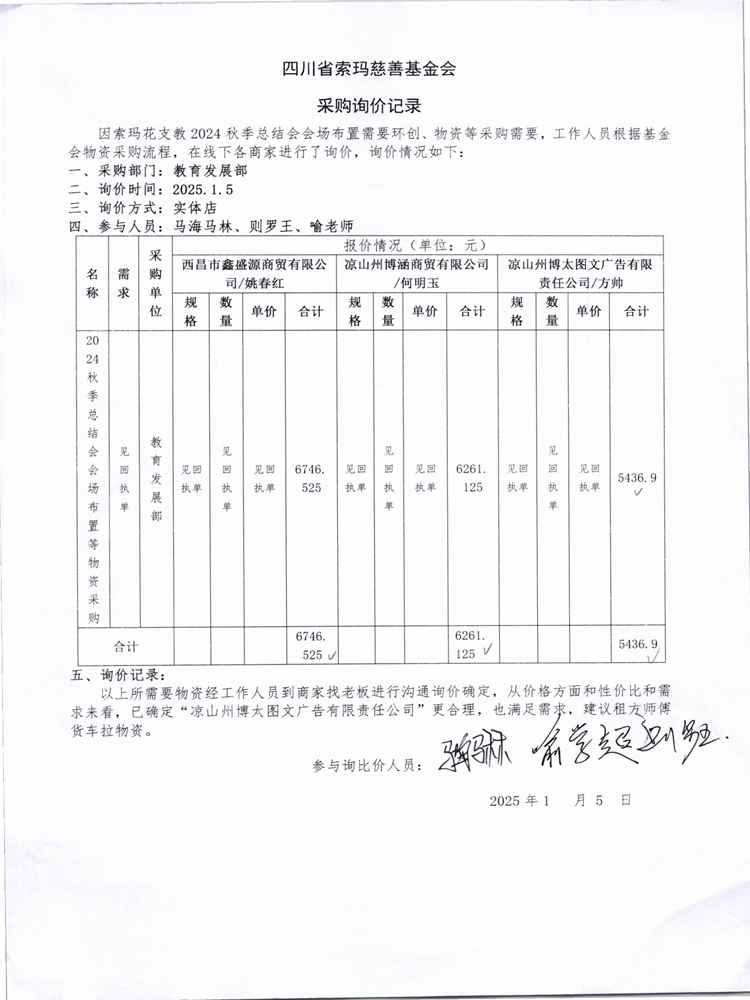 四川省索玛慈善基金会
采购询价记录
因索玛花支教 2024 秋季总结会会场布置需要环创、物资等采购需要，工作人员根据基金
会物资采购流程，在线下各商家进行了询价，询价情况如下：
一、采购部门：教育发展部
二、询价时间：2025.1.5
三、询价方式：实体店
四、参与人员：马海马林、则罗王、喻老师
名称 需求 采购单位 报价情况（单位：元）
西昌市鑫盛源商贸有限公司/姚春红 凉山州博涵商贸有限公司/何明玉 凉山州博太图文广告有限责任公司/方帅
规格 数量 单价 合计 规格 数量 单价 合计 规格 数量 单价 合计
2024秋季总结会会场布置等物资采购 见回执单 教育发展部 见回执单 见回执单 见回执单 6746.525 见回执单 见回执单 见回执单 6261.125 见回执单 见回执单 见回执单 5436.9
合计 6746.525 6261.125 5436.9
五、询价记录：
以上所需要物资经工作人员到商家找老板进行沟通询价确定，从价格方面和性价比和需
求来看，已确定“凉山州博太图文广告有限责任公司”更合理，也满足需求，建议租方师傅
货车拉物资。
参与询比价人员：
2025 年 1 月 5 日